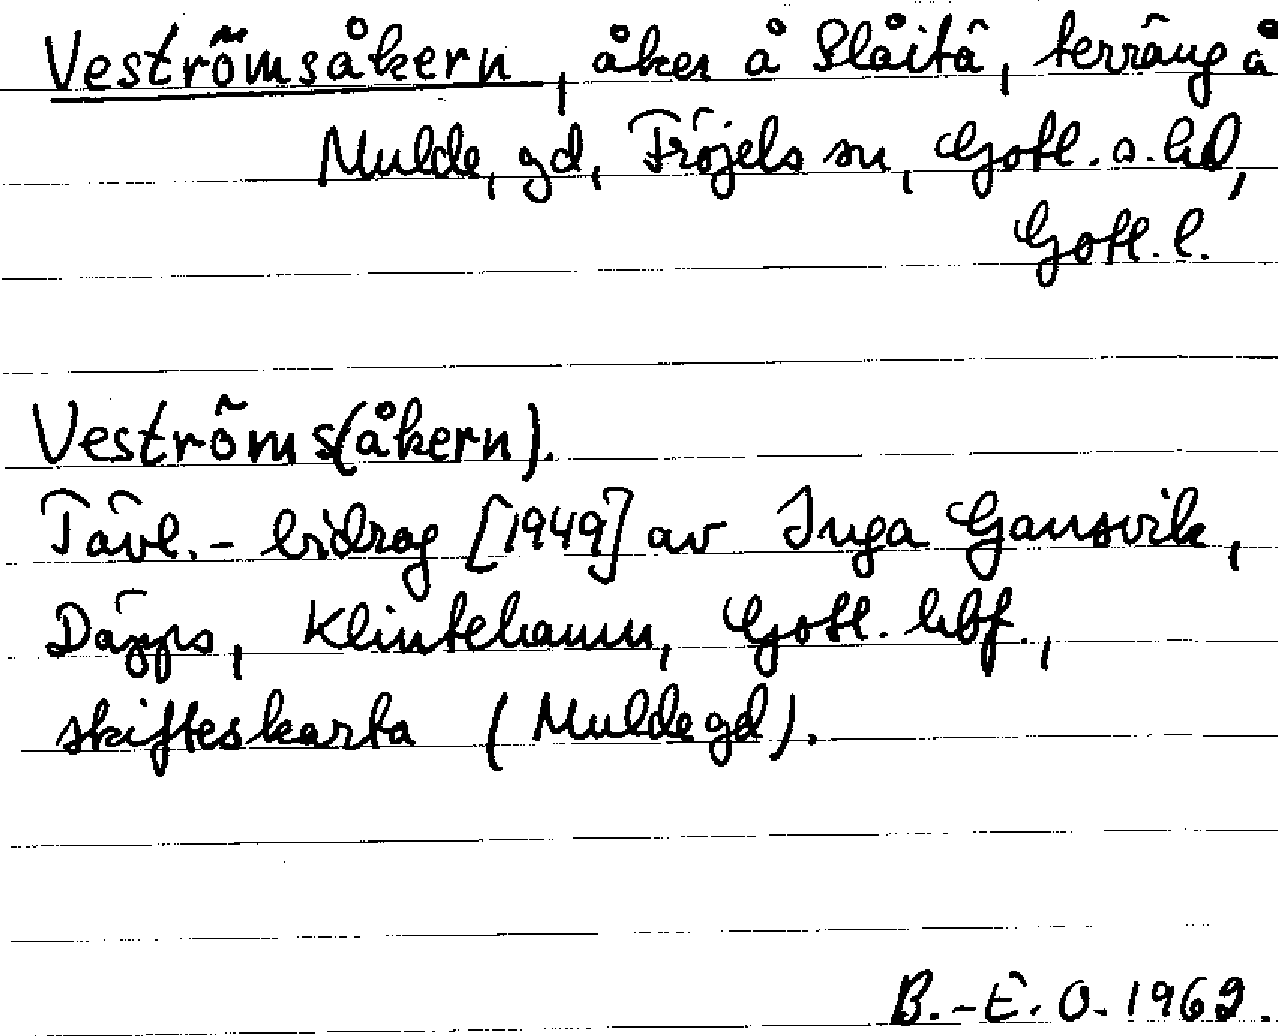 Veströmsåkern, åker å Slåitä, terräng å
Mulde, gd, Fröjels sn, Gotl. s. hd,
Gotl. l.
Veströms(åkern).
Tävl.-bidrag [1949] av Inga Gansvik,
Däpps, Klintehamn, Gotl. hbf.,
skifteskarta (Mulde gd).
B.-E. O. 1962.